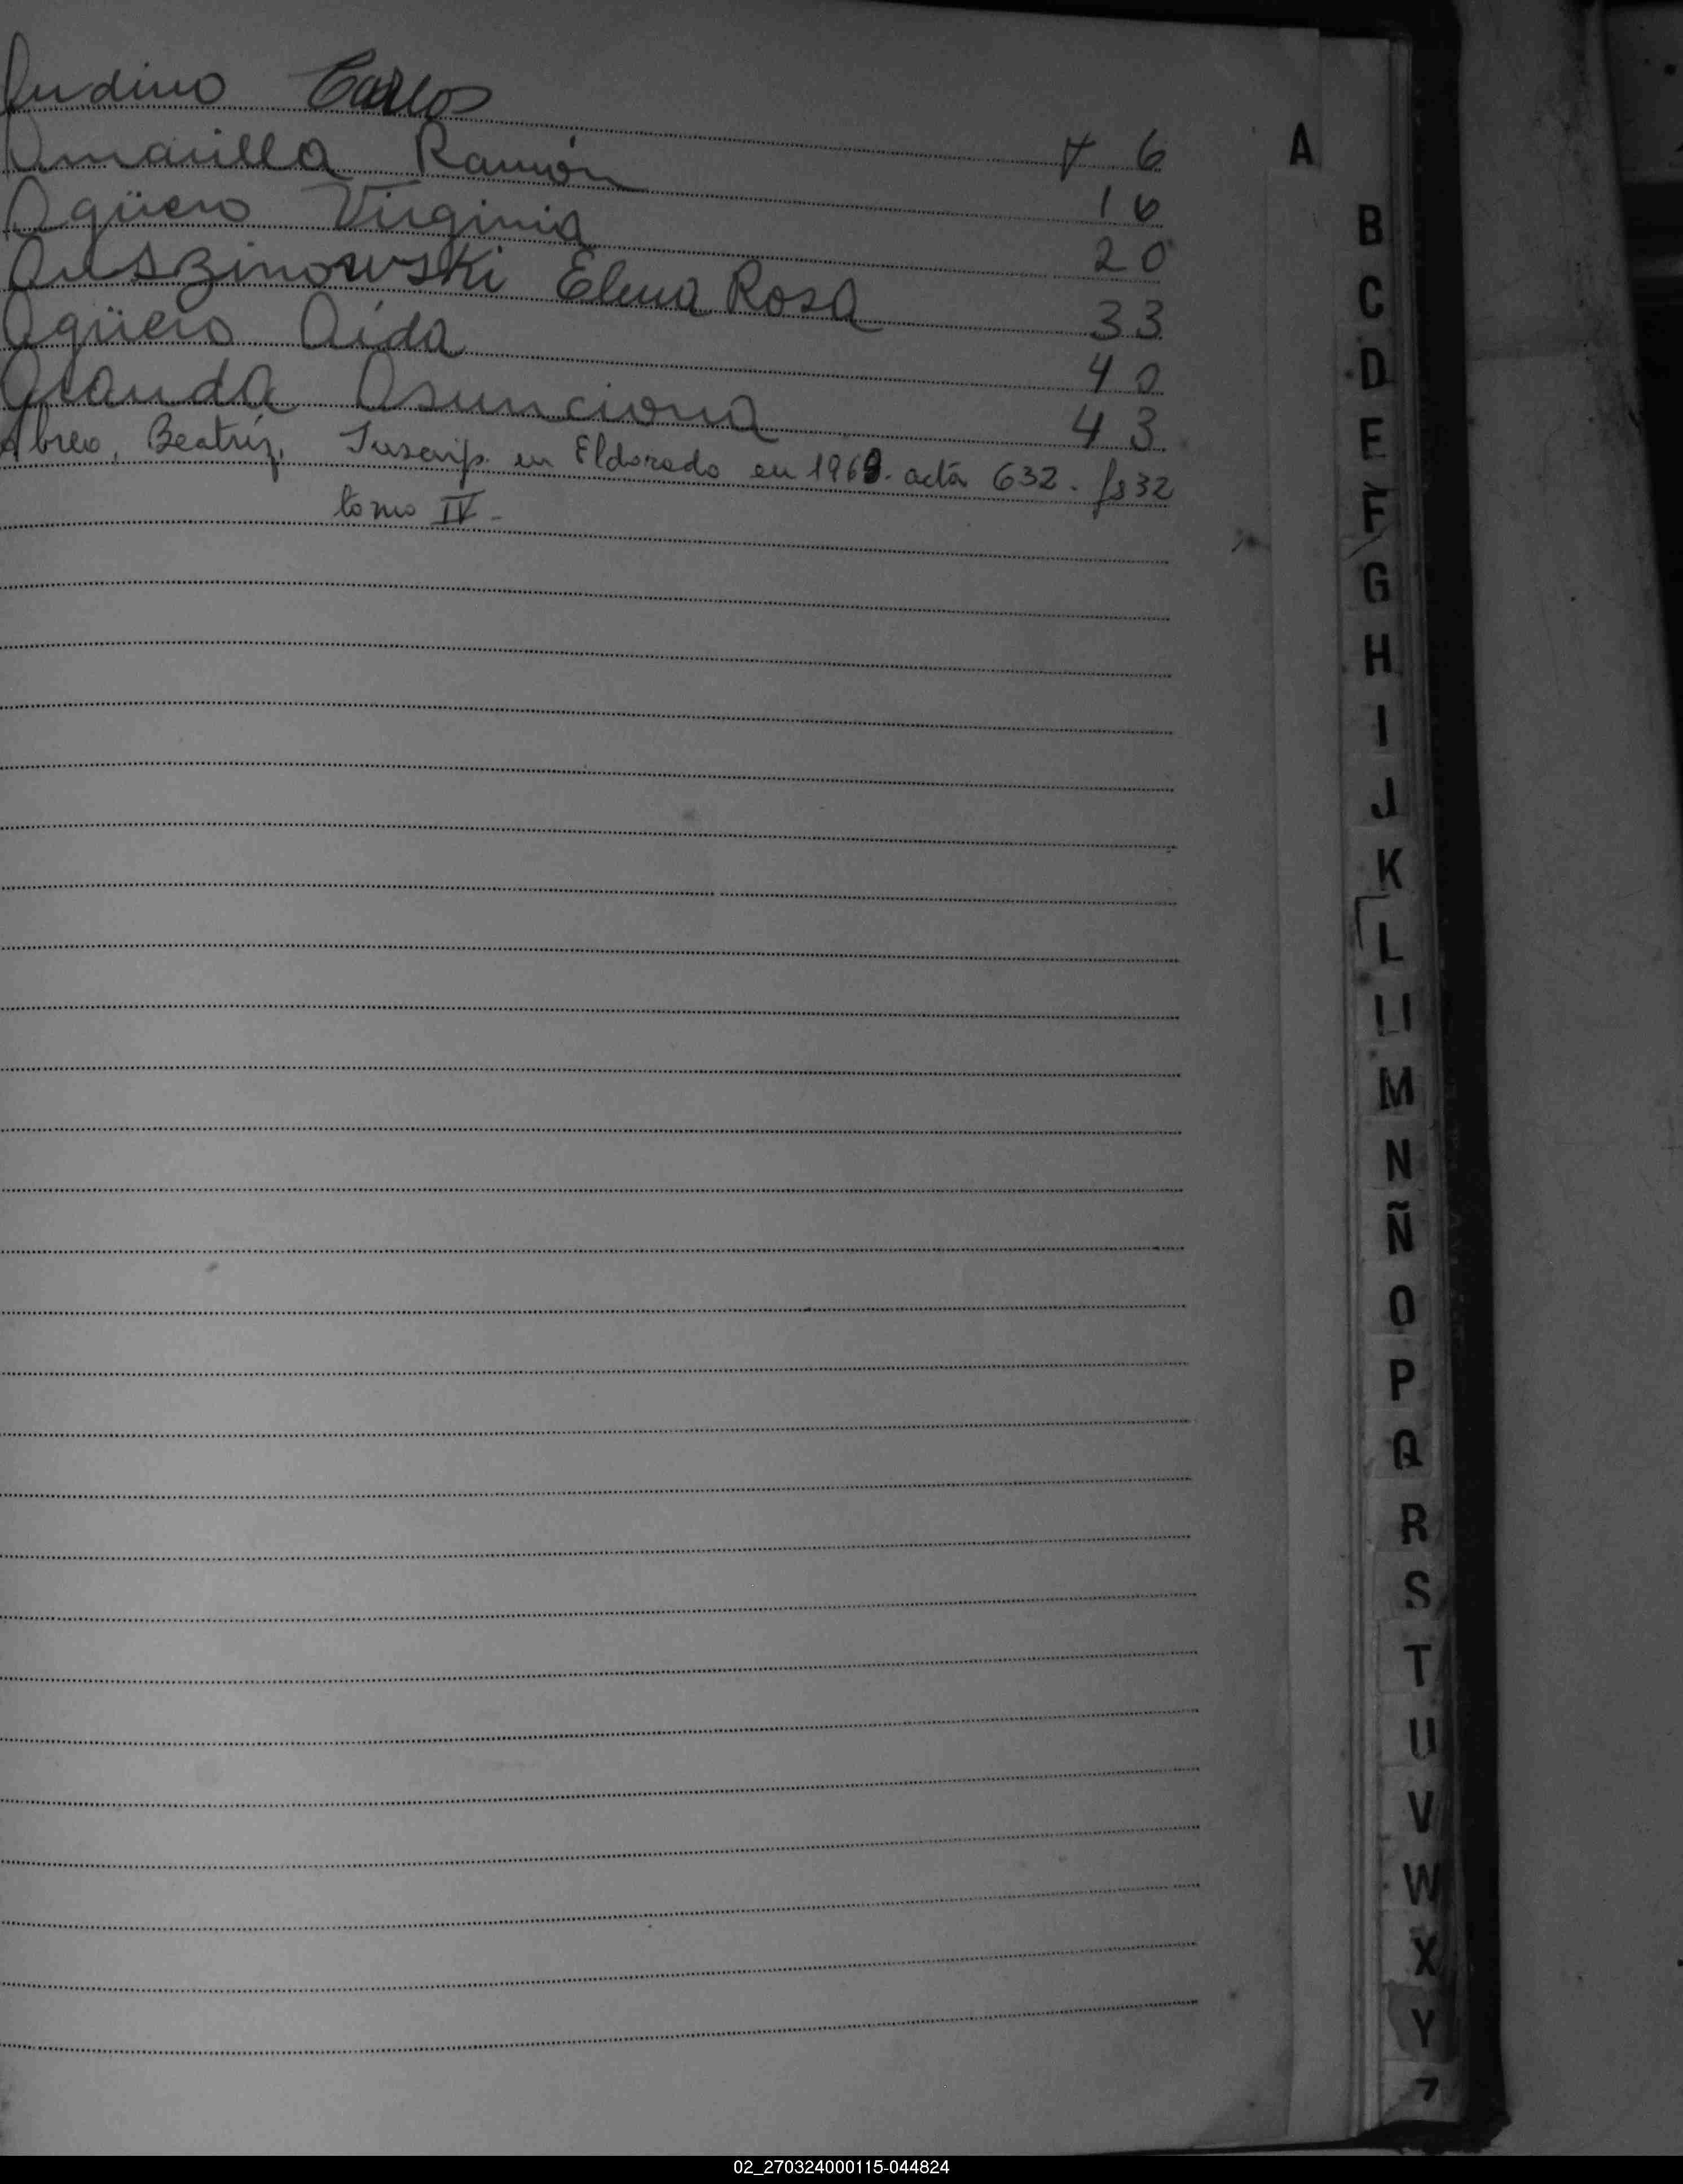 Andino Carlos 6
A
Amarilla Ramón 16
Agüero Virginia 20
B
Auszinowski Elena Rosa 33
C
Agüero Aída 40
D
Aranda Asunciona 43
E
Abreo, Beatríz. Inscrip. en Eldorado en 1969. acta 632. fs 32
tomo IV-
F
G
H
I
J
K
L
Ll
M
N
Ñ
O
P
Q
R
S
T
U
V
W
X
Y
02_270324000115-044824